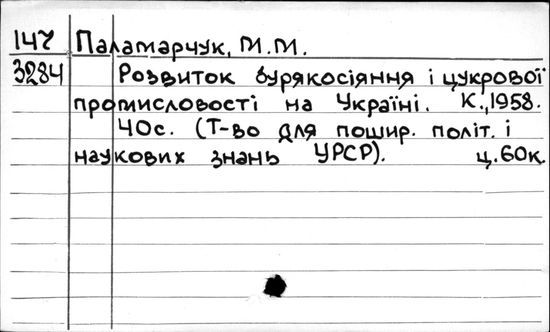 147 Паламарчук, М.М.
3284 Розвиток бурякосіяння і цукрової
промисловості на Україні. К.,1958.
40с. (Т-во для пошир. політ. і
наукових знань УРСР). ц.60к.